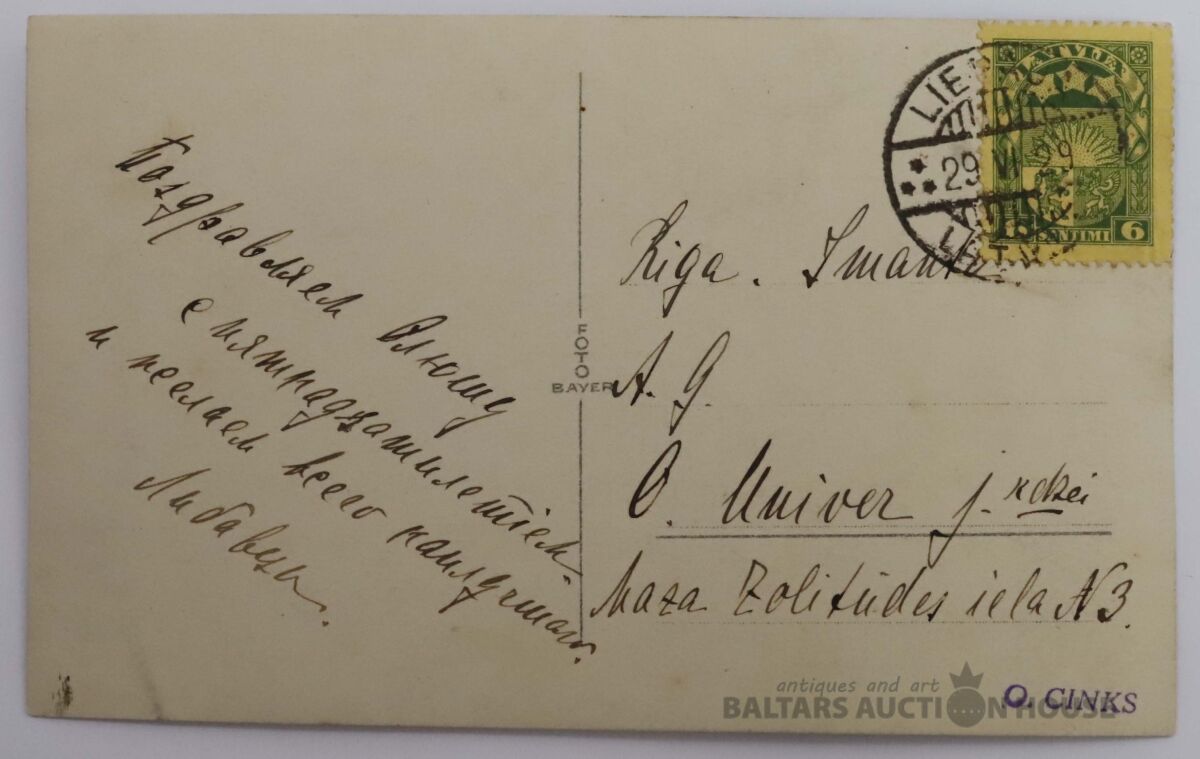 Поздравляем Олюшу
с пятнадцатилетiем.
и желаем всего наилучшаго.
Либавцы.
FOTO
BAYER
LATVIJA
6 SANTIMI 6
LIEPAJA
29 VI 29
Riga. Imanta.
A. G.
O. Univer j. kdzei
Maza Zolitudes iela N3.
O. CINKS
antiques and art
BALTARS AUCTION HOUSE